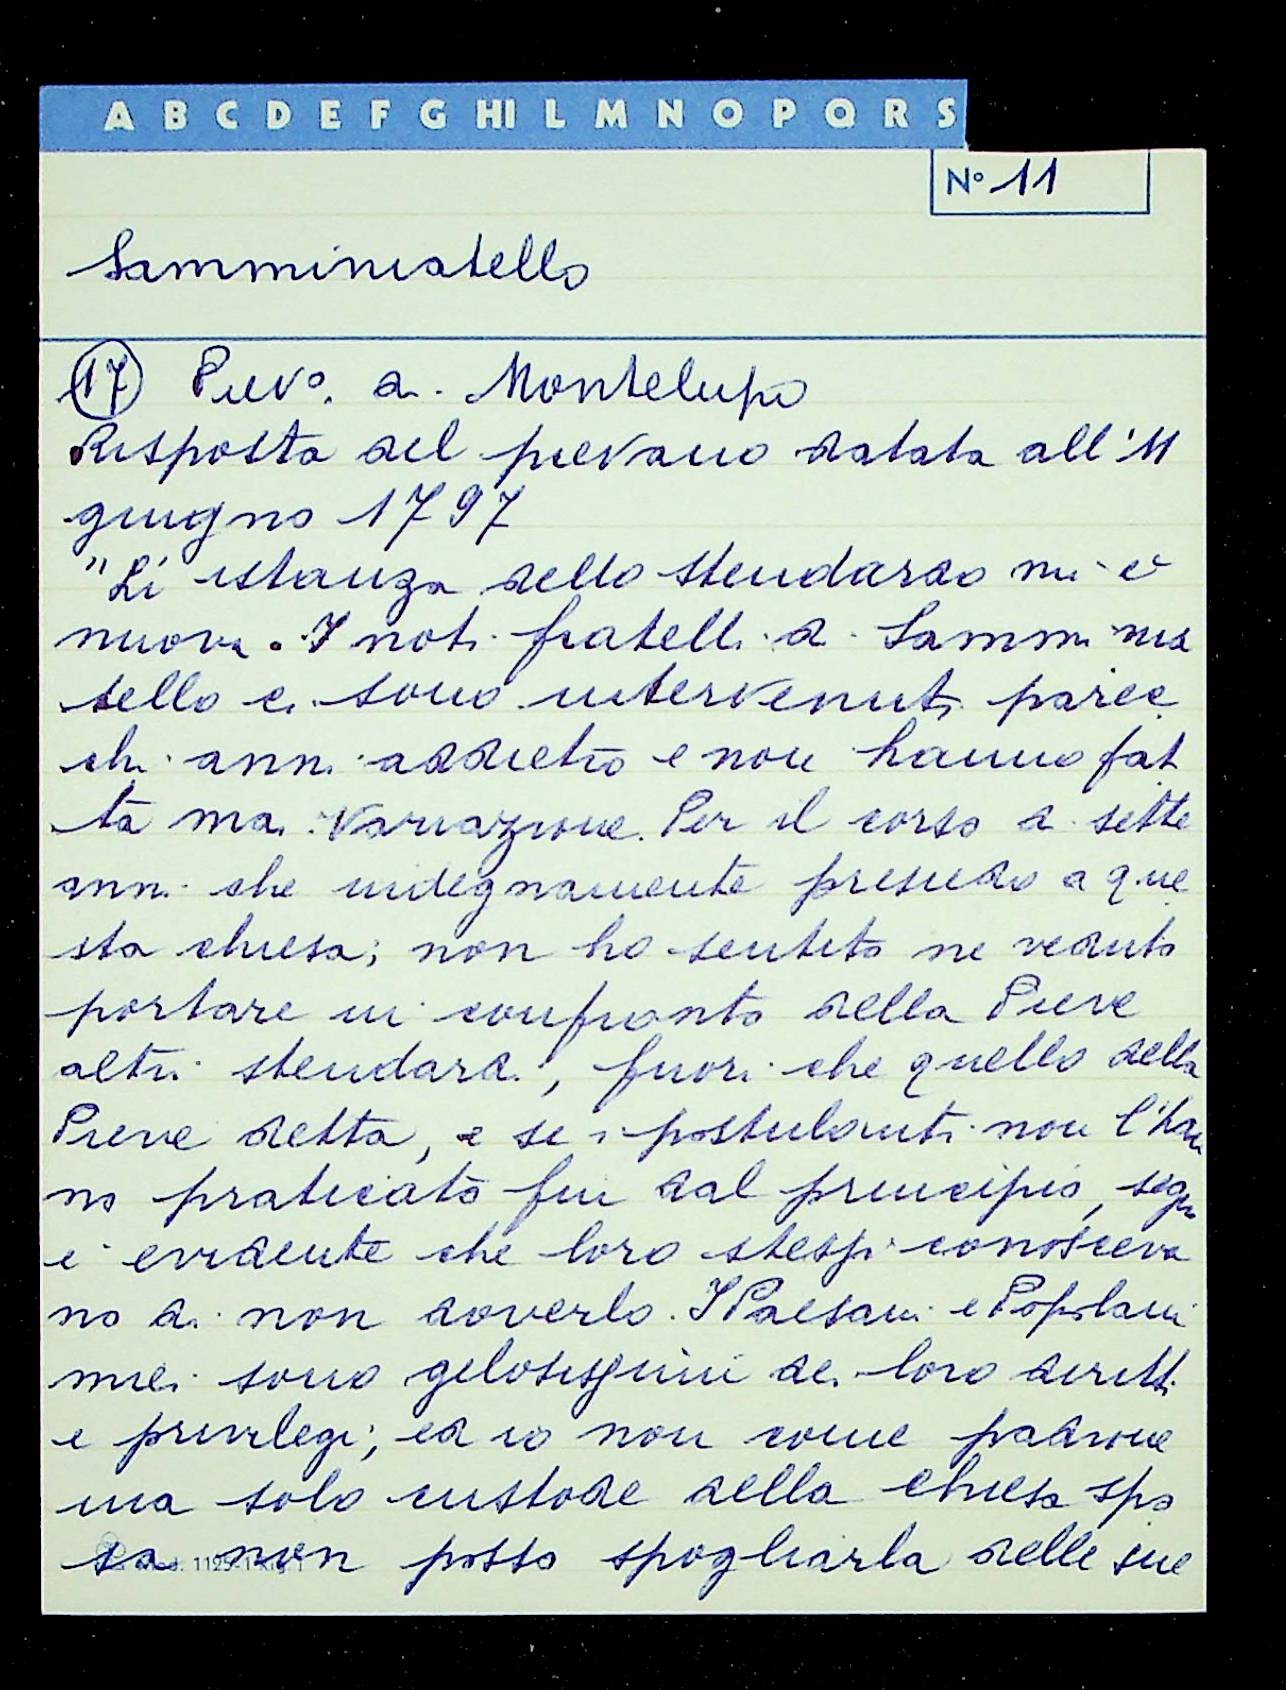 A B C D E F G HI L M N O P Q R S
N° 11
Samminiatello
17 Piev°. di Montelupo
Risposta del pievano datata all'11
giugno 1797
"Li istanza dello stendardo mi è
nuova. I noti fratelli di Sammi nia
tello ci sono intervenuti parec
chi anni addietro e non hanno fat
ta mai variazione. Per il corso di sette
anni che indegnamente presiedo a que
sta chiesa; non ho sentito ne veduto
portare in confronto della Pieve
altri stendardi, fuori che quello della
Pieve detta, e se i postulanti non l'han
no praticato fin dal principio, segn
è evidente che loro stessi conosceva
no di non doverlo. I Paesani e Popolani
miei sono gelosissimi dei loro diritti
e privilegi; ed io non come padrone
ma solo custode della chiesa spo
sa non posso spogliarla delle sue